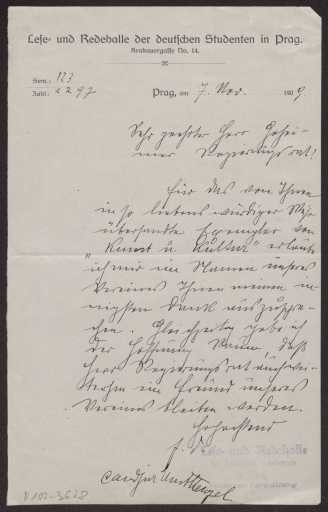 Lese- und Redehalle der deutschen Studenten in Prag.
Krakauergasse No. 14.
Sem.: 123
Zahl:
Prag, am 7. Nov. 1909
Sehr geehrter Herr Gehei-
mer Regierungsrat!
Für das von Ihnen
in so liebenswürdiger Weise
übersandte Exemplar von
„Kunst u. Kultur" erlaube
ich mir im Namen unseres
Vereines Ihnen meinen in-
nigsten Dank auszuspre-
chen. Gleichzeitig gebe ich
der Hoffnung Raum, daß
Herr Regierungsrat auch wei-
terhin ein Freund unseres
Vereines bleiben werden.
Hochachtend
Lese- und Redehalle
V 102-3628